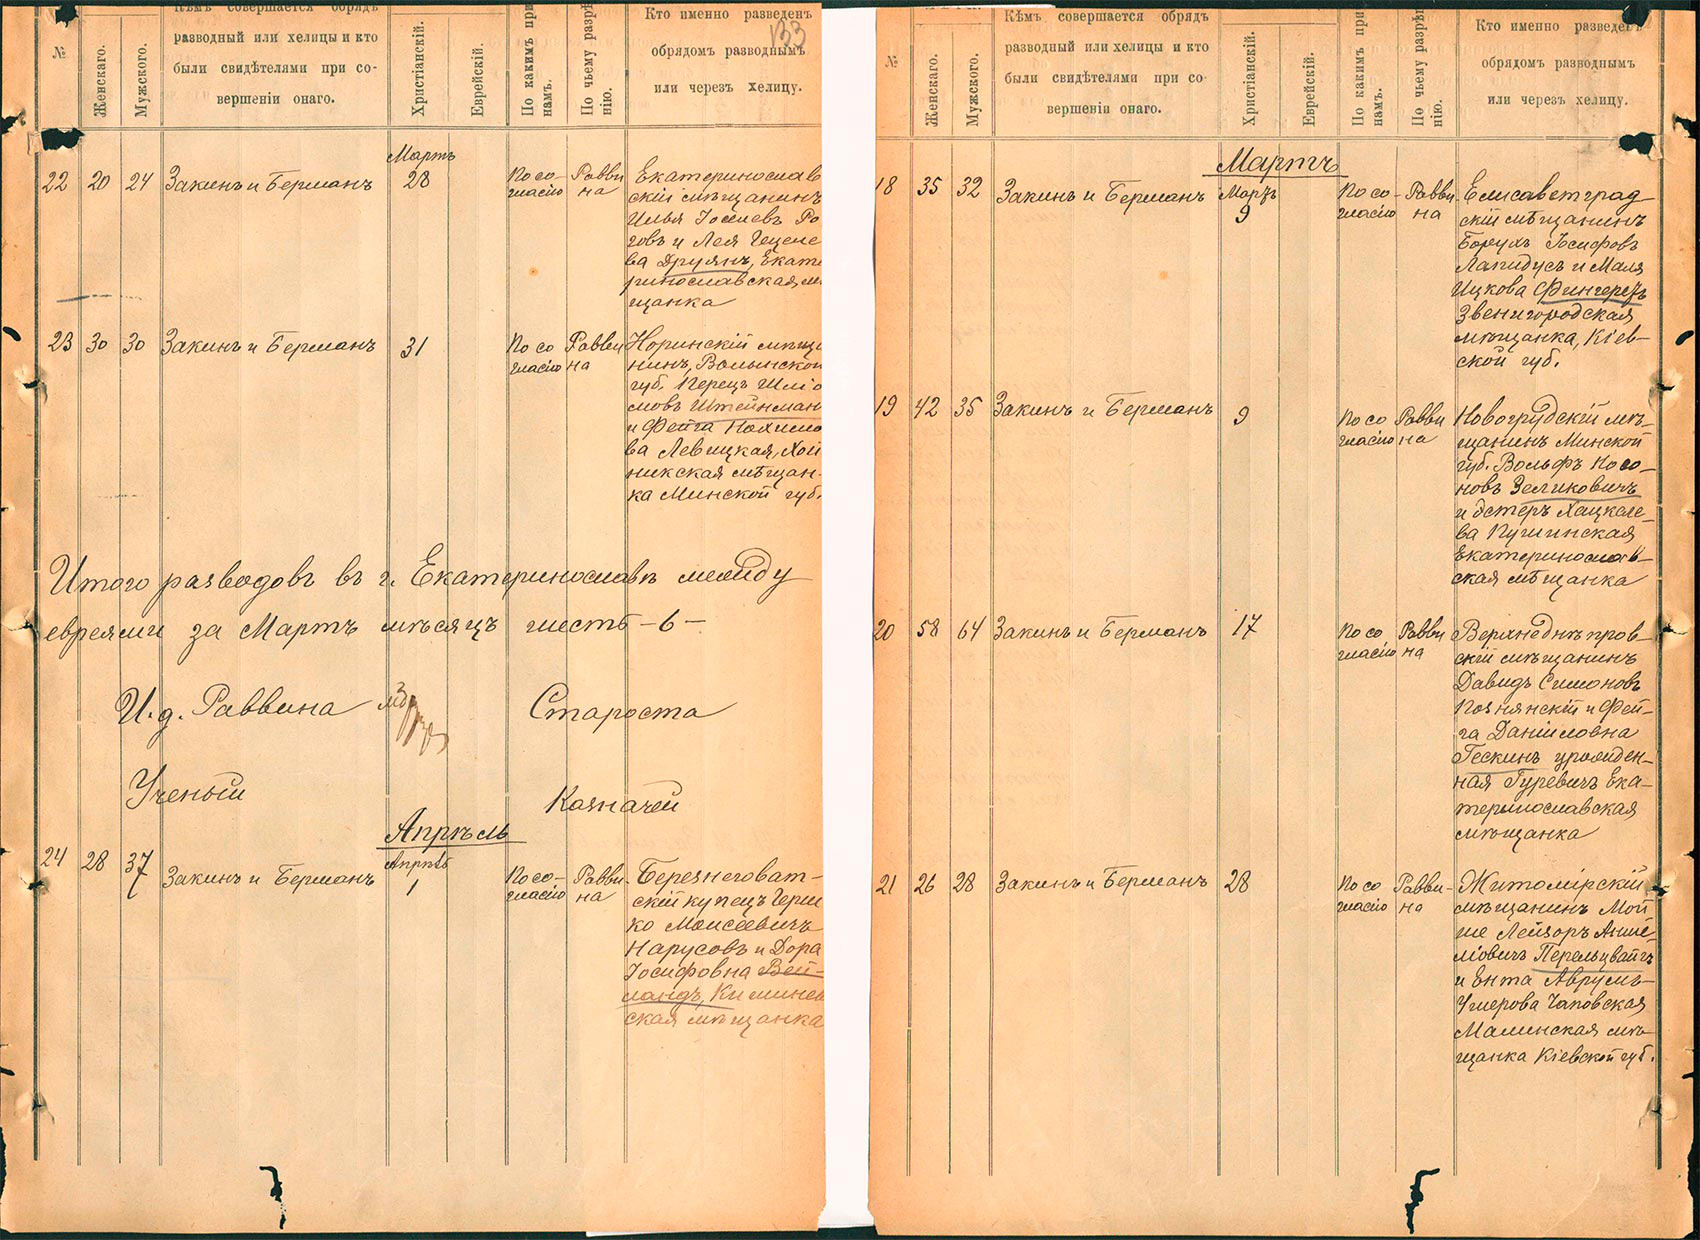 №
Женскаго.
Мужского.
Кѣмъ совершается обрядъ
разводный или хелицы и кто
были свидѣтелями при со-
вершеніи онаго.
Христіанскій.
Еврейскій.
По какимъ при
намъ.
По чьему разрѣ
нію.
Кто именно разведенъ
обрядомъ разводнымъ
или черезъ хелицу.
133
22 20 24 Закинъ и Берманъ
Мартъ
28
По со-
гласію
Равви
на
Екатеринослав
скій мѣщанинъ
Илья Іосиевъ Ро
говъ и Лея Гецеле
ва Друянъ, Екате
ринославская м
щанка
23 30 30 Закинъ и Берманъ 31
По со
гласію
Равви
на
Норинскій мѣща
нинъ, Волынской
губ. Перецъ Шліо
мовъ Штейнман
и Фейга Нохимо
ва Левицкая, Хой
никская мѣщан-
ка Минской губ.
Итого разводовъ въ г. Екатеринославѣ между
евреями за Мартъ мѣсяцъ шесть -6-
И. д. Раввина
Староста
Ученый
Казначей
Апрѣль
24 28 37 Закинъ и Берманъ
Апрѣль
1
По со-
гласію
Равви-
на
Березнеговат-
скій купецъ Герш
ко Моисеевичъ
Нарусовъ и Дора
Іосифовна Вей-
ландъ, Кишинев
ская мѣщанка
№
Женскаго.
Мужского.
Кѣмъ совершается обрядъ
разводный или хелицы и кто
были свидѣтелями при со-
вершеніи онаго.
Христіанскій.
Еврейскій.
По какимъ при
намъ.
По чьему разрѣш
нію.
Кто именно разведенъ
обрядомъ разводнымъ
или черезъ хелицу.
Мартъ
18 35 32 Закинъ и Берманъ
Мартъ
9
По со-
гласію
Равви
на
Елисаветград
скій мѣщанинъ
Борухъ Іосифовъ
Лапидусъ и Маля
Ицкова Фингеретъ
Звенигородская
мѣщанка, Кіев-
ской губ.
19 42 35 Закинъ и Берманъ 9
По со
гласію
Равви
на
Новогрудскій мѣ-
щанинъ Минской
губ. Вольфъ Носо-
новъ Зеликовичъ
и Эстеръ Хацкеле-
ва Пушинская
Екатеринослав-
ская мѣщанка
20 58 64 Закинъ и Берманъ 17
По со
гласію
Равви
на
Верхнеднѣпров-
скій мѣщанинъ
Давидъ Симоновъ
Познянскій и Фей-
га Даніиловна
Гескинъ урожден-
ная Гуревичъ Ека-
теринославская
мѣщанка
21 26 28 Закинъ и Берманъ 28
По со
гласію
Равви-
на
Житомірскій
мѣщанинъ Мой
ше Лейзоръ Анше-
ліовичъ Перельцвайгъ
и Ента Аврумъ-
Умерова Чаповская
Малинская мѣ-
щанка Кіевской губ.